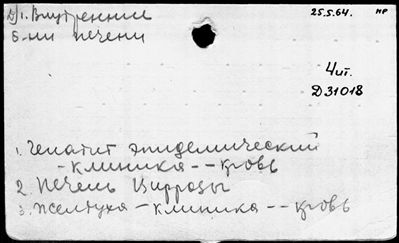 Д/1. Внутренние
б-ни печени
25.5.64. НР
Чит.
Д31018
1. Гепатит эпидемический
- клиника -- кровь
2. Печень Циррозы
3. Желтуха - клиника -- кровь